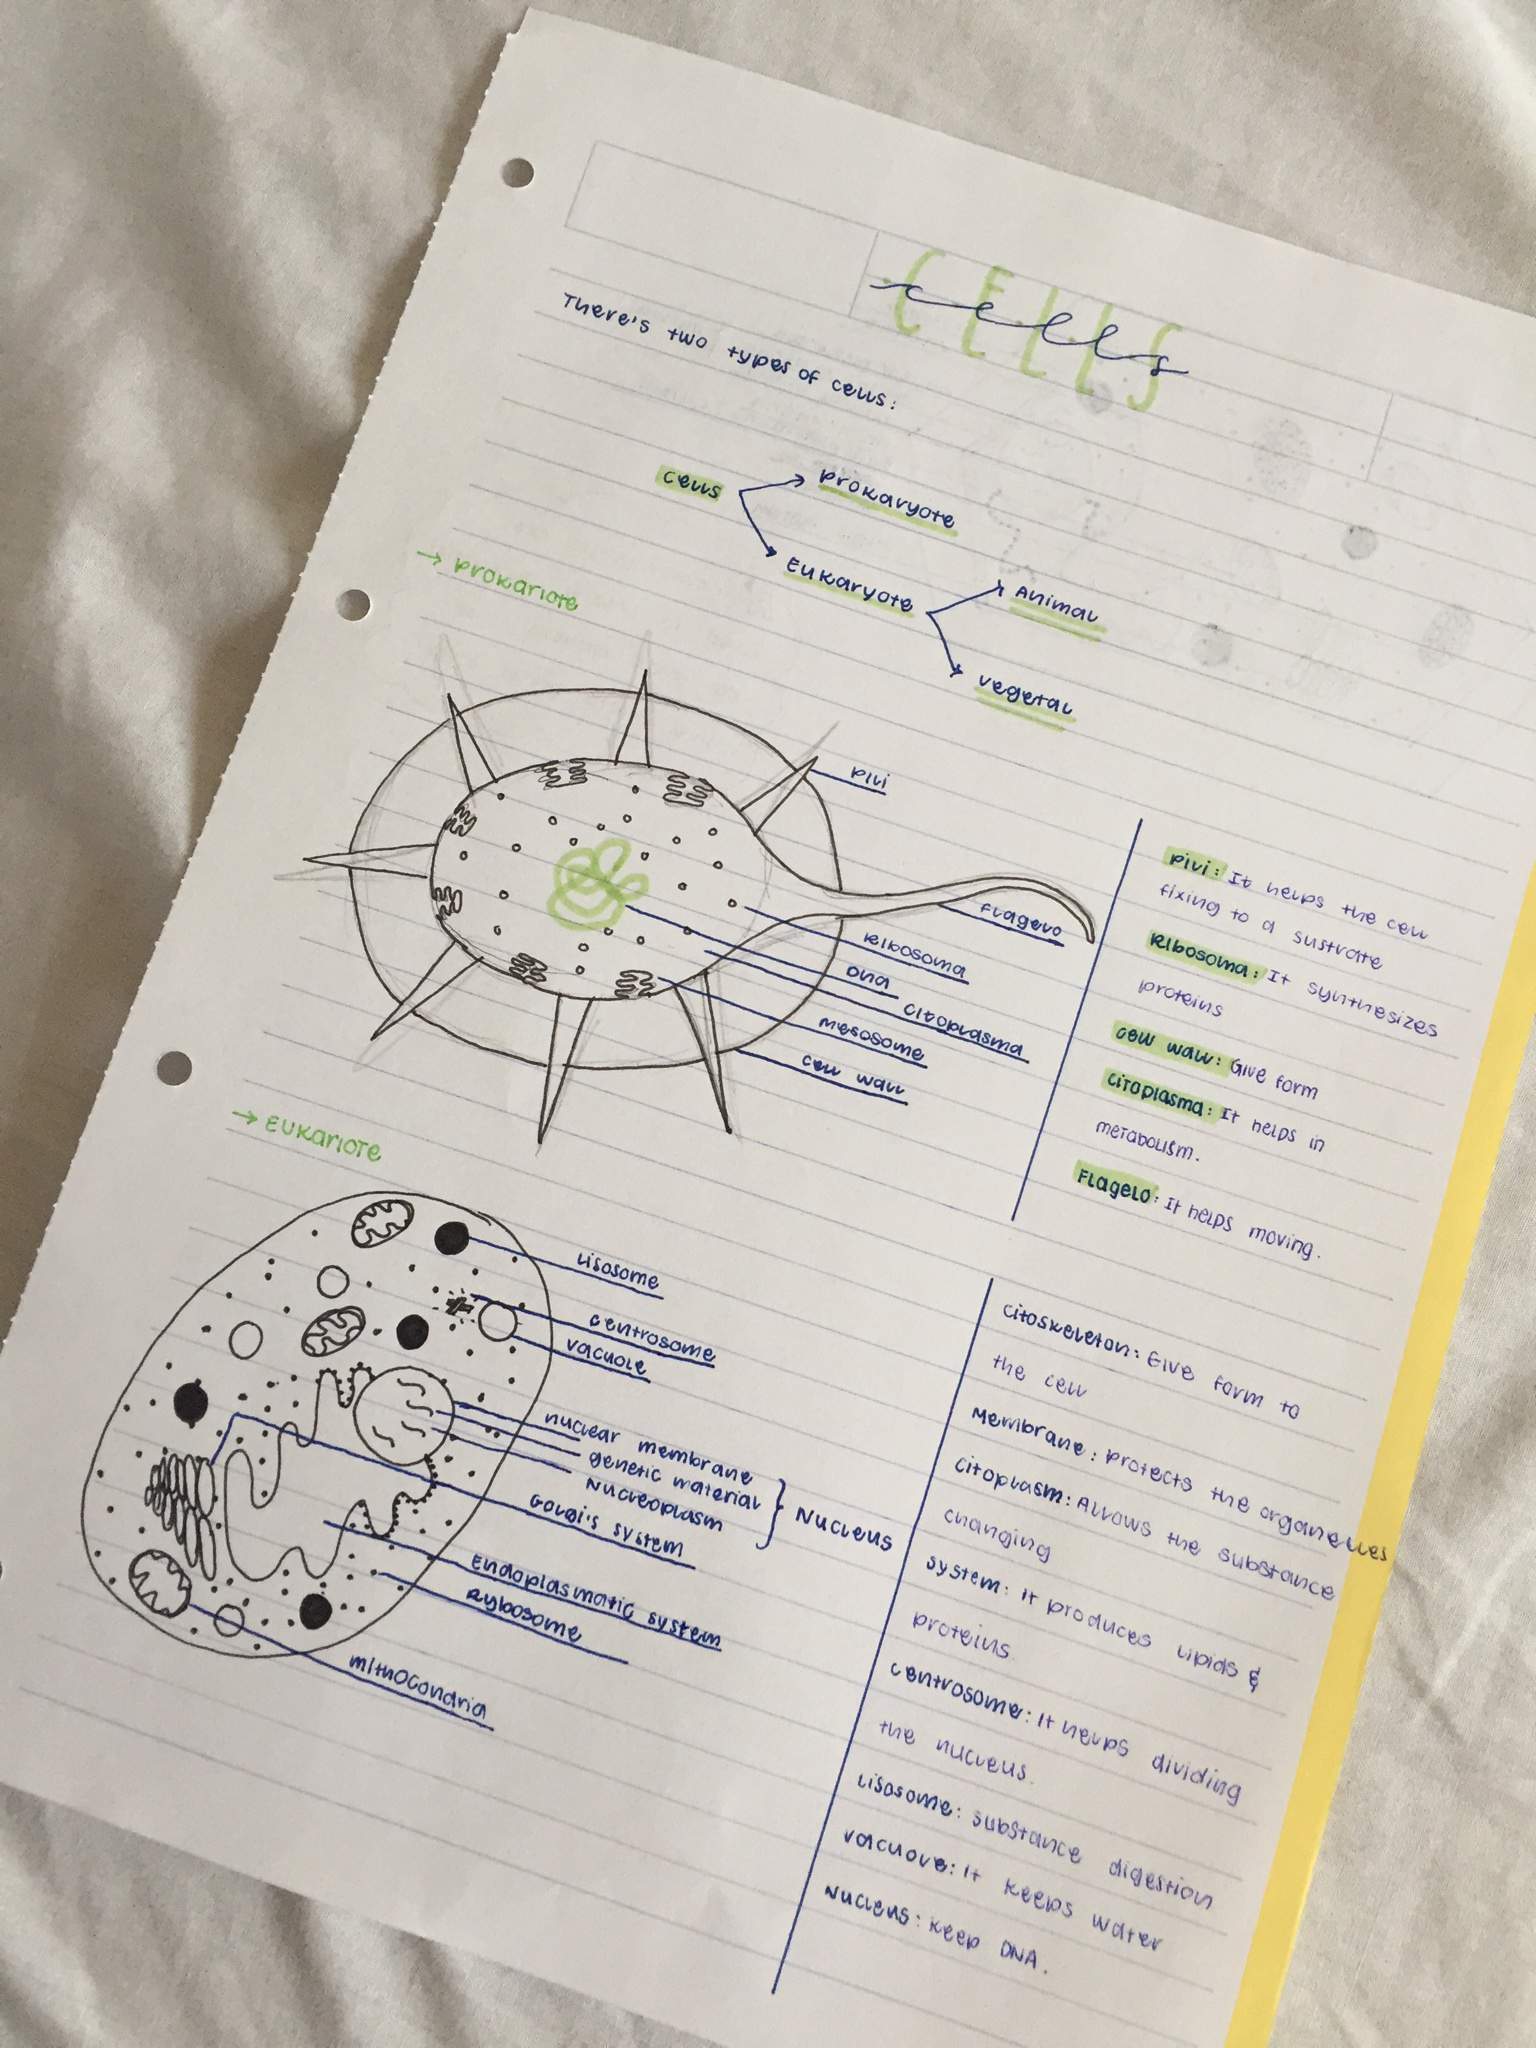 CELLS
cells
There's two types of cells:
cells
Prokaryote
Eukaryote
Animal
vegetal
→ Prokariote
Pivi
Flagelo
Ribosoma
DNA
citoplasma
mesosome
cell wall
Pivi: It helps the cell
fixing to a sustrate
Ribosoma: It synthesizes
proteins
cell wall: Give form
citoplasma: It helps in
metabolism.
Flagelo: It helps moving.
→ Eukariote
Lisosome
centrosome
vacuole
nuclear membrane
genetic material
Nucleoplasm
Nucleus
Golgi's system
Endoplasmatic system
Rybosome
mithocondria
citoskeleton: Give form to
the cell
Membrane: Protects the organelles
citoplasm: Allows the substance
changing
system: It produces lipids &
proteins.
centrosome: It helps dividing
the nucleus.
Lisosome: substance digestion
vacuole: It keeps water
Nucleus: Keep DNA.